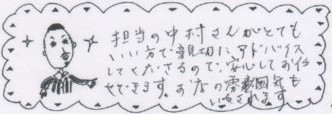 担当の中村さんがとても
いい方で親切にアドバイス
してくださるので、安心してお任
せできます。お店の雰囲気も
いやされます